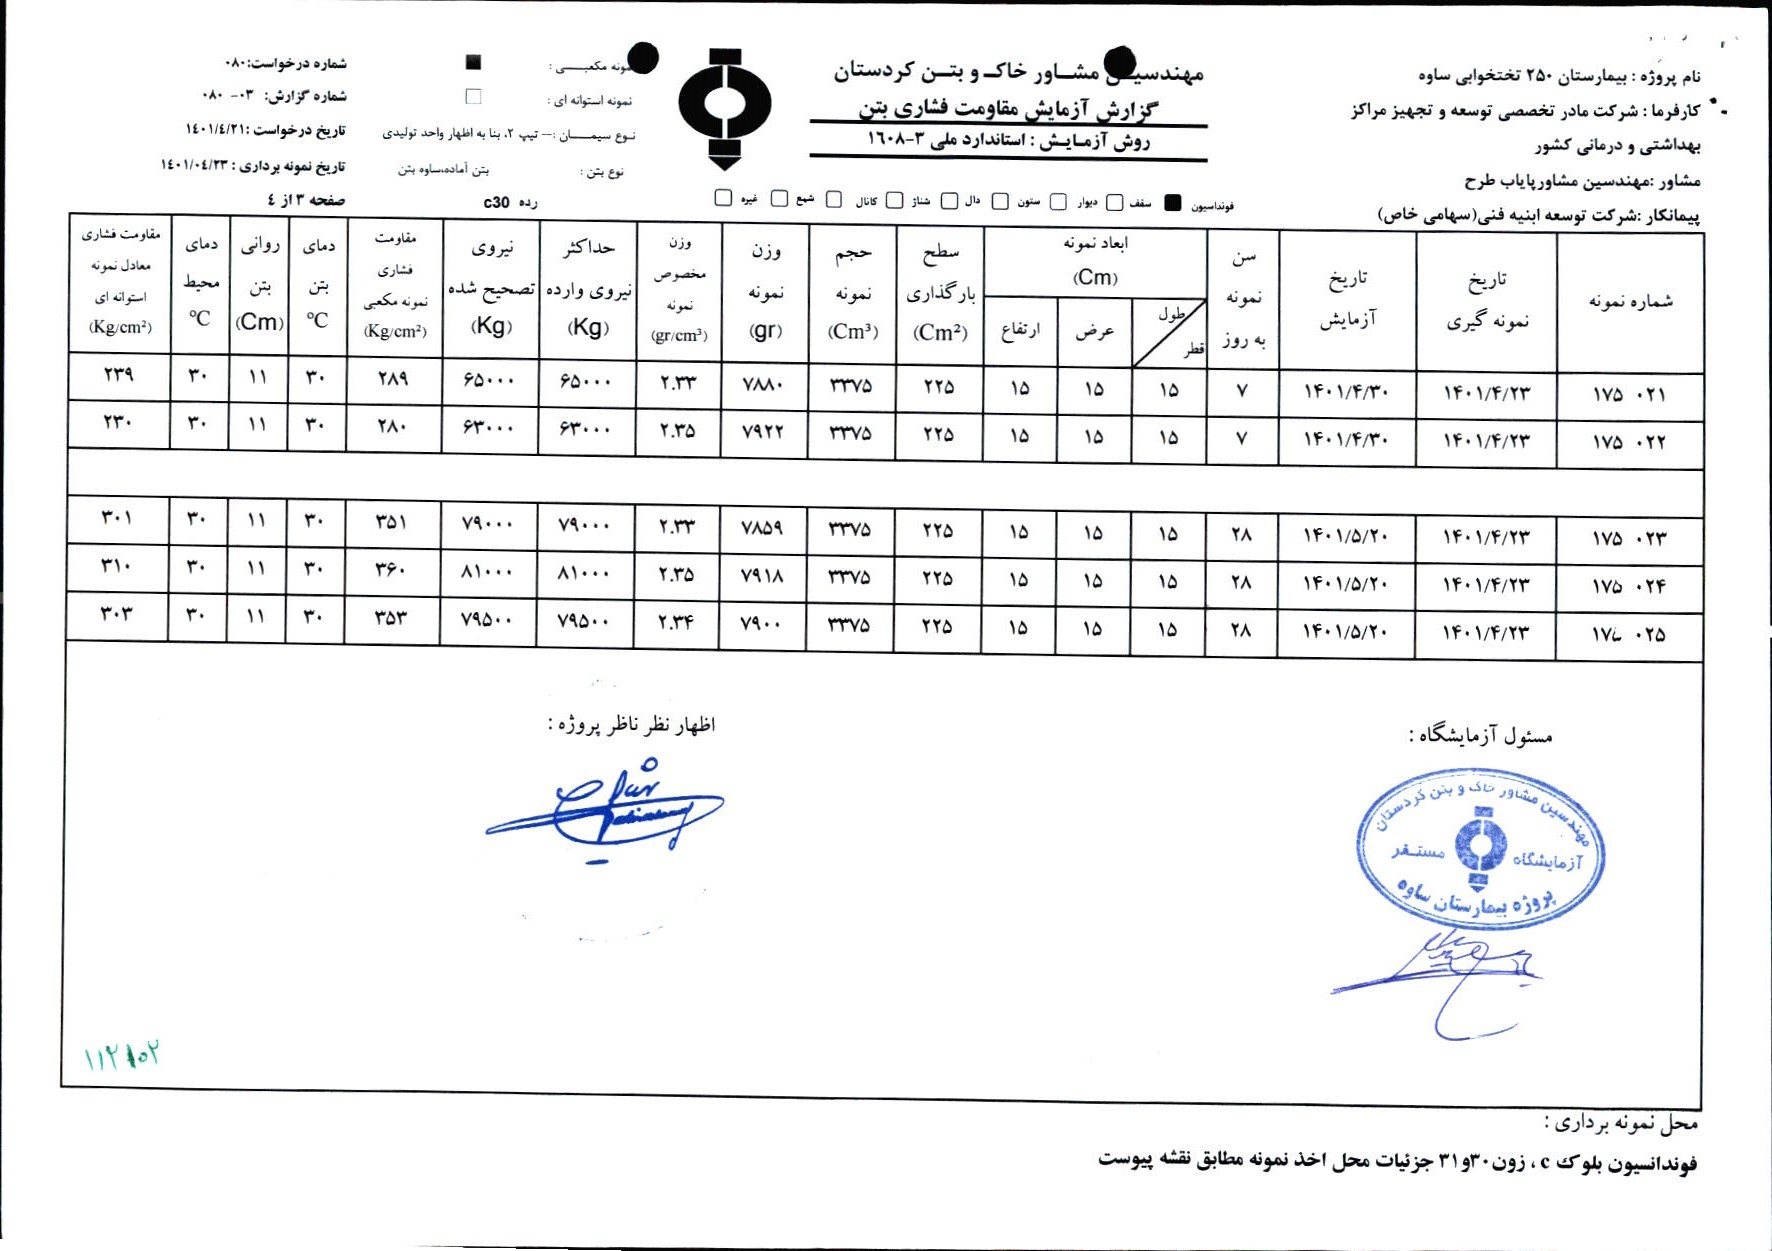 نام پروژه : بیمارستان ۲۵۰ تختخوابی ساوه
کارفرما : شرکت مادر تخصصی توسعه و تجهیز مراکز
بهداشتی و درمانی کشور
مشاور :مهندسین مشاورپایاب طرح
پیمانکار :شرکت توسعه ابنیه فنی(سهامی خاص)
مهندسین مشاور خاک و بتن کردستان
گزارش آزمایش مقاومت فشاری بتن
روش آزمایش : استاندارد ملی ۳-۱۶۰۸
فونداسیون سقف دیوار ستون دال شناژ کانال شمع غیره
نمونه مکعبی :
نمونه استوانه ای :
نوع سیمان :-- تیپ ۲، بنا به اظهار واحد تولیدی
نوع بتن : بتن آماده،ساوه بتن
رده c30
شماره درخواست:۰۸۰
شماره گزارش: ۰۳- ۰۸۰
تاریخ درخواست :۱۴۰۱/۴/۲۱
تاریخ نمونه برداری : ۱۴۰۱/۰۴/۲۳
صفحه ۳ از ۴
شماره نمونه
تاریخ نمونه گیری
تاریخ آزمایش
سن نمونه به روز
ابعاد نمونه (Cm)
طول
قطر
عرض
ارتفاع
سطح بارگذاری (Cm²)
حجم نمونه (Cm³)
وزن نمونه (gr)
وزن مخصوص نمونه (gr/cm³)
حداکثر نیروی وارده (Kg)
نیروی تصحیح شده (Kg)
مقاومت فشاری نمونه مکعبی (Kg/cm²)
دمای بتن °C
روانی بتن (Cm)
دمای محیط °C
مقاومت فشاری معادل نمونه استوانه ای (Kg/cm²)
۱۷۵ ۰۲۱ ۱۴۰۱/۴/۲۳ ۱۴۰۱/۴/۳۰ ۷ ۱۵ ۱۵ ۱۵ ۲۲۵ ۳۳۷۵ ۷۸۸۰ ۲.۳۳ ۶۵۰۰۰ ۶۵۰۰۰ ۲۸۹ ۳۰ ۱۱ ۳۰ ۲۳۹
۱۷۵ ۰۲۲ ۱۴۰۱/۴/۲۳ ۱۴۰۱/۴/۳۰ ۷ ۱۵ ۱۵ ۱۵ ۲۲۵ ۳۳۷۵ ۷۹۲۲ ۲.۳۵ ۶۳۰۰۰ ۶۳۰۰۰ ۲۸۰ ۳۰ ۱۱ ۳۰ ۲۳۰
۱۷۵ ۰۲۳ ۱۴۰۱/۴/۲۳ ۱۴۰۱/۵/۲۰ ۲۸ ۱۵ ۱۵ ۱۵ ۲۲۵ ۳۳۷۵ ۷۸۵۹ ۲.۳۳ ۷۹۰۰۰ ۷۹۰۰۰ ۳۵۱ ۳۰ ۱۱ ۳۰ ۳۰۱
۱۷۵ ۰۲۴ ۱۴۰۱/۴/۲۳ ۱۴۰۱/۵/۲۰ ۲۸ ۱۵ ۱۵ ۱۵ ۲۲۵ ۳۳۷۵ ۷۹۱۸ ۲.۳۵ ۸۱۰۰۰ ۸۱۰۰۰ ۳۶۰ ۳۰ ۱۱ ۳۰ ۳۱۰
۱۷۵ ۰۲۵ ۱۴۰۱/۴/۲۳ ۱۴۰۱/۵/۲۰ ۲۸ ۱۵ ۱۵ ۱۵ ۲۲۵ ۳۳۷۵ ۷۹۰۰ ۲.۳۴ ۷۹۵۰۰ ۷۹۵۰۰ ۳۵۳ ۳۰ ۱۱ ۳۰ ۳۰۳
مسئول آزمایشگاه :
اظهار نظر ناظر پروژه :
مهندسین مشاور خاک و بتن کردستان
آزمایشگاه مستقر
پروژه بیمارستان ساوه
محل نمونه برداری :
فوندانسیون بلوک c ، زون۳۰و۳۱ جزئیات محل اخذ نمونه مطابق نقشه پیوست